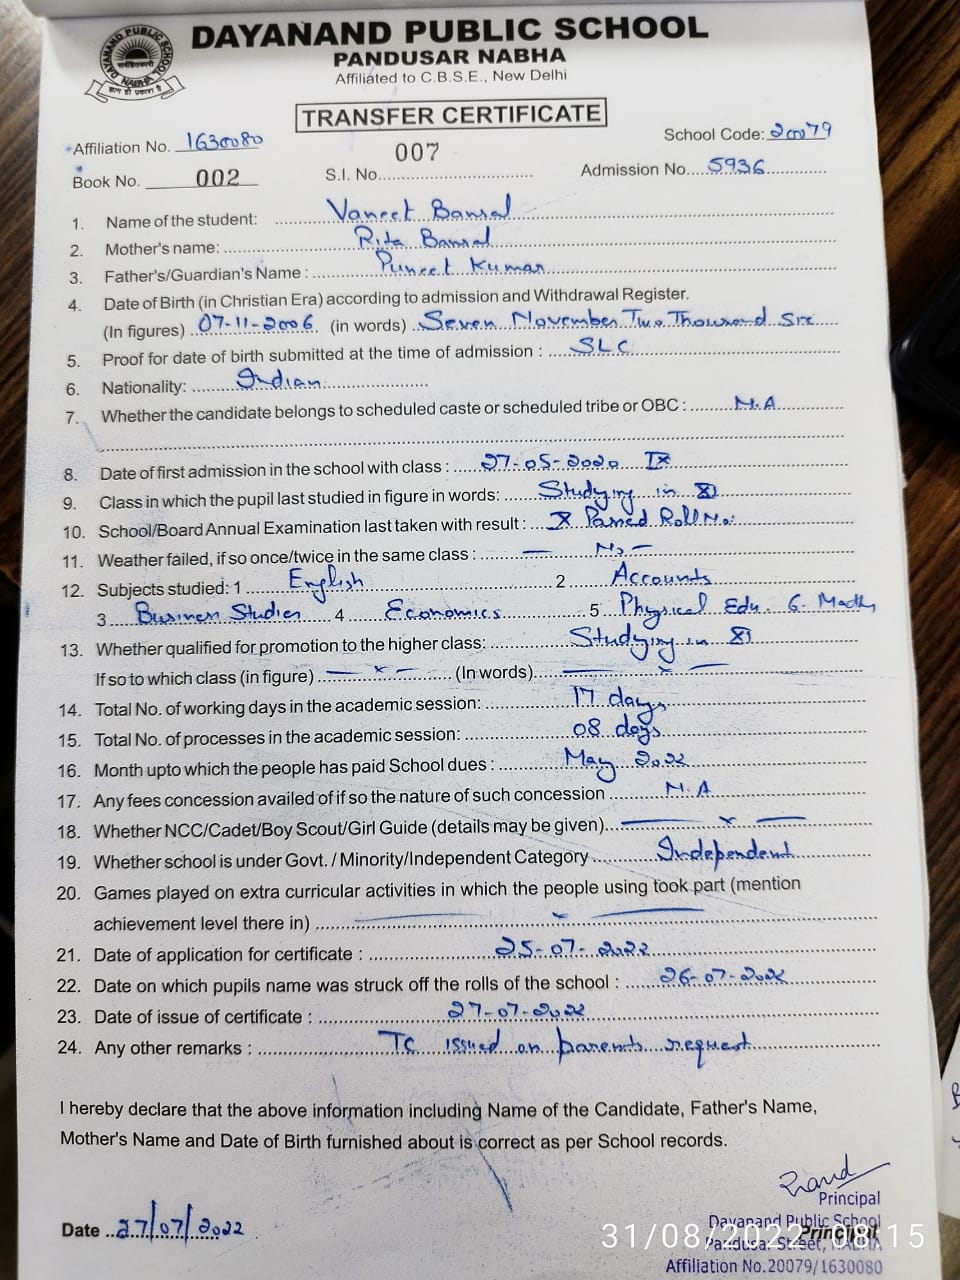 DAYANAND PUBLIC SCHOOL
PANDUSAR NABHA
Affiliated to C.B.S.E., New Delhi
DAYANAND PUBLIC SCHOOL
NABHA
TRANSFER CERTIFICATE
Affiliation No. 1630080 School Code: 20079
Book No. 002 S.I. No. 007 Admission No. 5936
1. Name of the student: Vaneet Bansal
2. Mother's name: Rita Bansal
3. Father's/Guardian's Name : Puneet Kumar
4. Date of Birth (in Christian Era) according to admission and Withdrawal Register.
(In figures) 07-11-2006 (in words) Seven November Two Thousand Six
5. Proof for date of birth submitted at the time of admission : SLC
6. Nationality: Indian
7. Whether the candidate belongs to scheduled caste or scheduled tribe or OBC : N.A
8. Date of first admission in the school with class : 27-05-2020 IX
9. Class in which the pupil last studied in figure in words: Studying in XI
10. School/Board Annual Examination last taken with result : X Passed Roll No:
11. Weather failed, if so once/twice in the same class : — No —
12. Subjects studied: 1 English 2 Accounts
3 Business Studies 4 Economics 5 Physical Edu. 6. Maths
13. Whether qualified for promotion to the higher class: Studying in XI
If so to which class (in figure) — x — (In words) — x —
14. Total No. of working days in the academic session: 17 days
15. Total No. of processes in the academic session: 08 days
16. Month upto which the people has paid School dues : May 2022
17. Any fees concession availed of if so the nature of such concession N.A
18. Whether NCC/Cadet/Boy Scout/Girl Guide (details may be given) — x —
19. Whether school is under Govt. / Minority/Independent Category Independent
20. Games played on extra curricular activities in which the people using took part (mention
achievement level there in)
21. Date of application for certificate : 25-07-2022
22. Date on which pupils name was struck off the rolls of the school : 26-07-2022
23. Date of issue of certificate : 27-07-2022
24. Any other remarks : TC issued on parents request
I hereby declare that the above information including Name of the Candidate, Father's Name,
Mother's Name and Date of Birth furnished about is correct as per School records.
Principal
Date 27/07/2022
Dayanand Public School
Principal
Pandusar Street, NABHA
Affiliation No.20079/1630080
31/08/2022 08:15